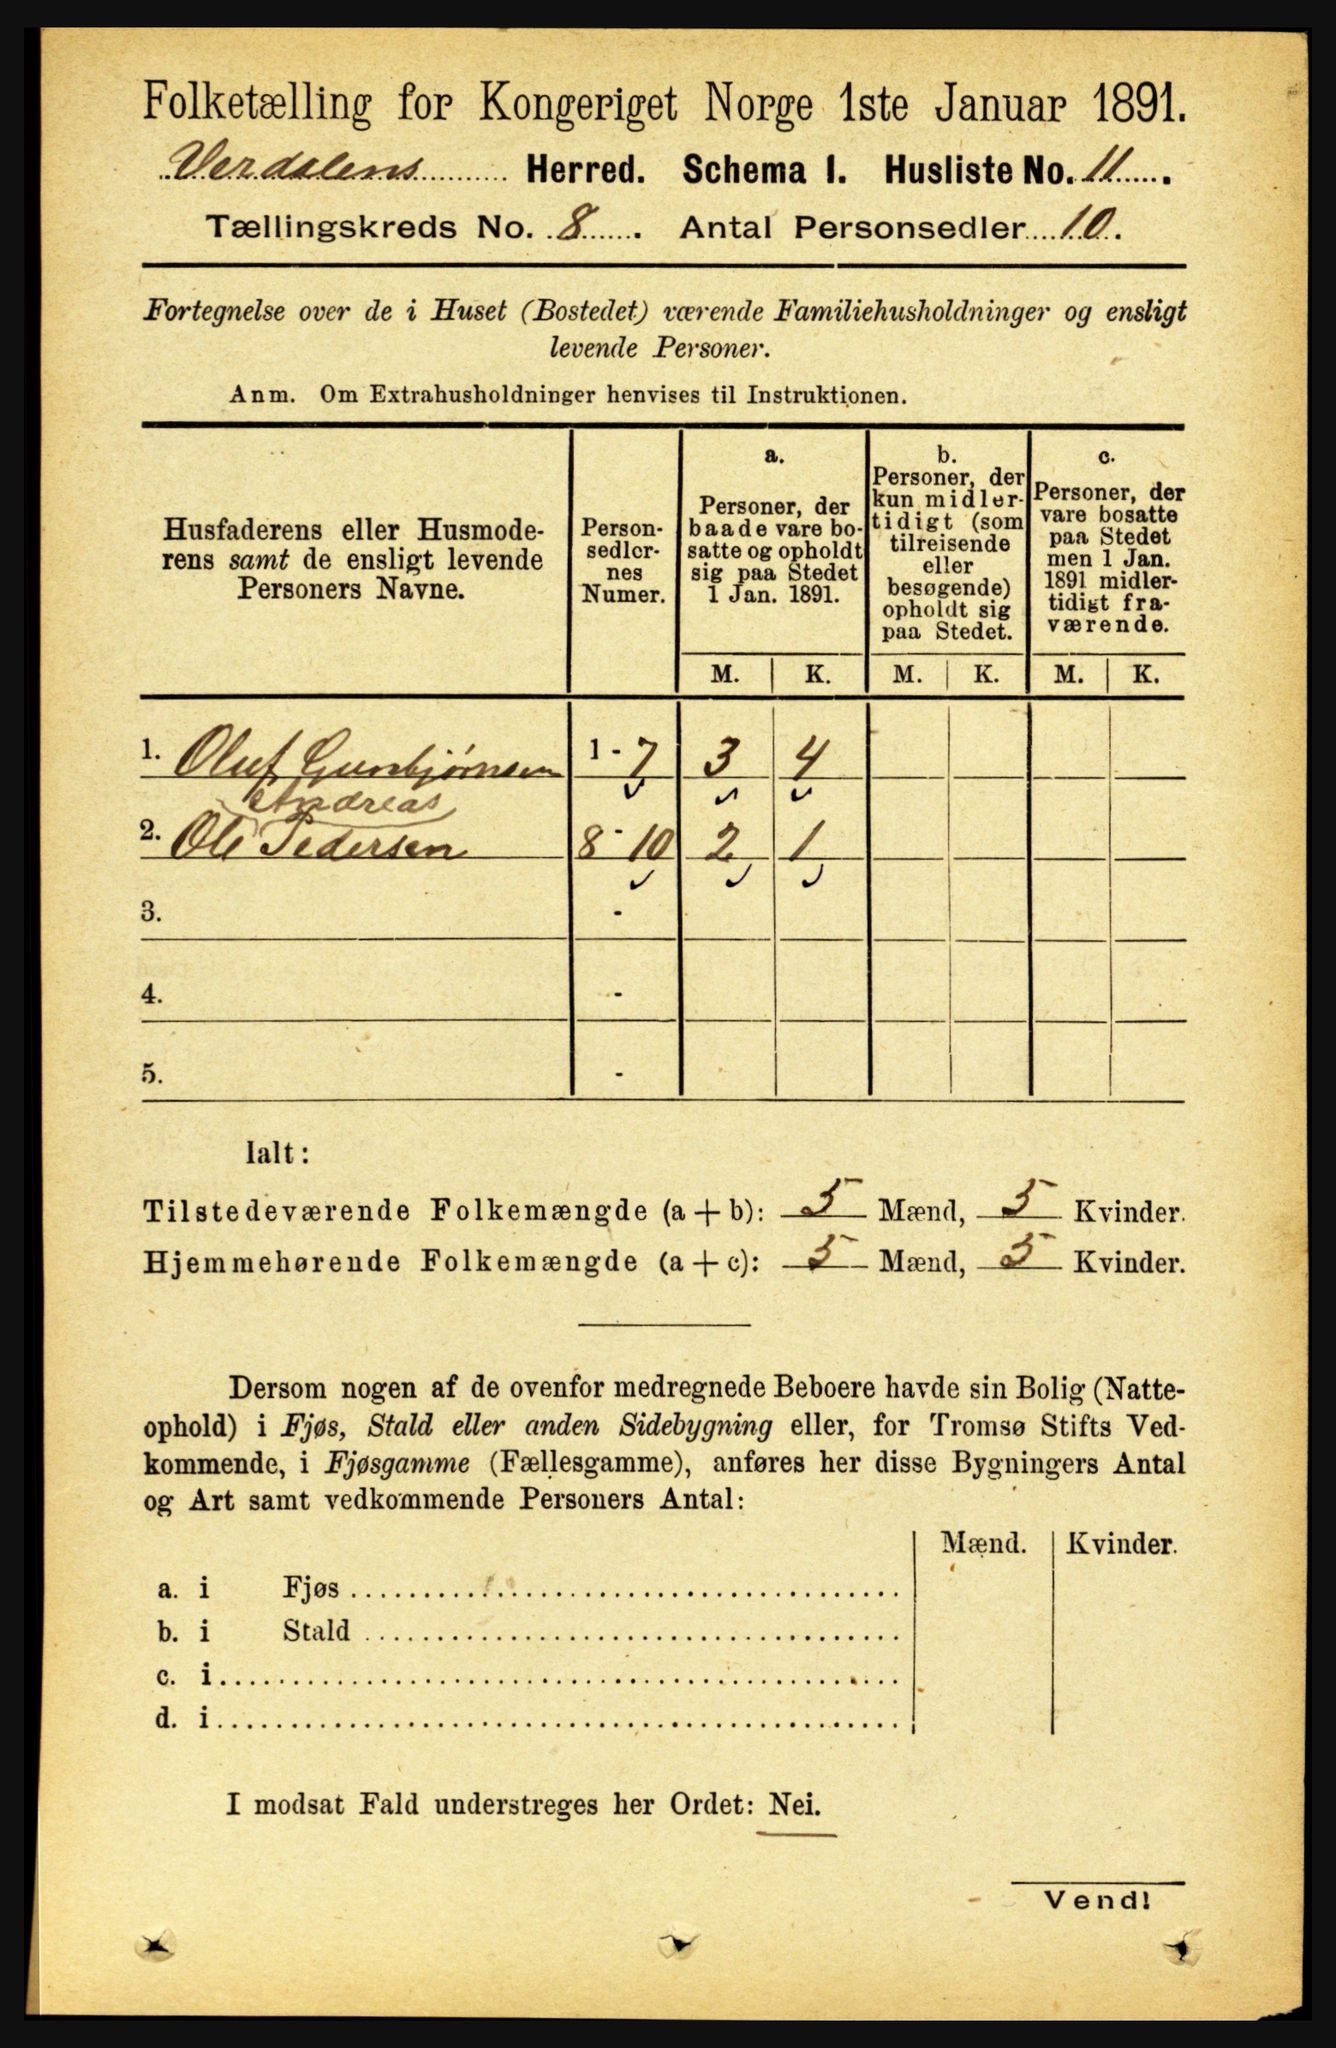 Folketælling for Kongeriget Norge 1ste Januar 1891.
Verdalens Herred. Schema I. Husliste No. 11.
Tællingskreds No. 8. Antal Personsedler 10.
Fortegnelse over de i Huset (Bostedet) værende Familiehusholdninger og ensligt
levende Personer.
Anm. Om Extrahusholdninger henvises til Instruktionen.
Husfaderens eller Husmode-
rens samt de ensligt levende
Personers Navne.
Person-
sedler-
nes
Numer.
a.
Personer, der
baade vare bo-
satte og opholdt
sig paa Stedet
1 Jan. 1891.
b.
Personer, der
kun midler-
tidigt (som
tilreisende
eller
besøgende)
opholdt sig
paa Stedet.
c.
Personer, der
vare bosatte
paa Stedet
men 1 Jan.
1891 midler-
tidigt fra-
værende.
M. K. M. K. M. K.
1. Oluf Gunbjørnsen 1 - 7 3 4
Andreas
2. Ole Pedersen 8 - 10 2 1
3. -
4. -
5. -
Ialt:
Tilstedeværende Folkemængde (a + b): 5 Mænd, 5 Kvinder.
Hjemmehørende Folkemængde (a + c): 5 Mænd, 5 Kvinder.
Dersom nogen af de ovenfor medregnede Beboere havde sin Bolig (Natte-
ophold) i Fjøs, Stald eller anden Sidebygning eller, for Tromsø Stifts Ved-
kommende, i Fjøsgamme (Fællesgamme), anføres her disse Bygningers Antal
og Art samt vedkommende Personers Antal:
Mænd. Kvinder.
a. i Fjøs
b. i Stald
c. i
d. i
I modsat Fald understreges her Ordet: Nei.
Vend!